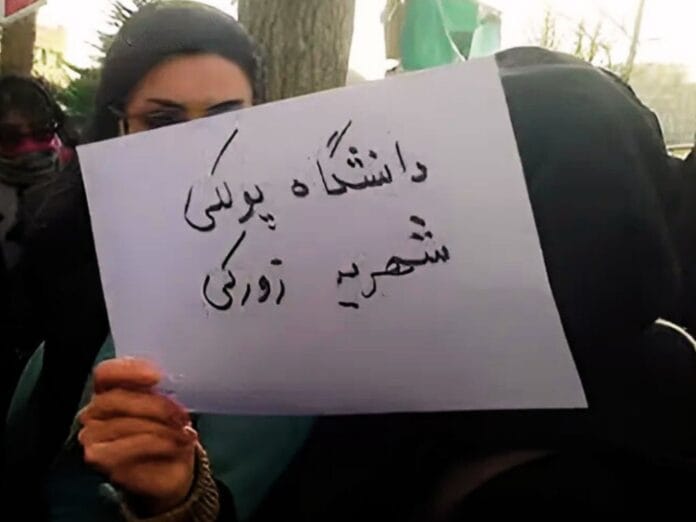 دانشگاه پولکی
شهریه زورکی